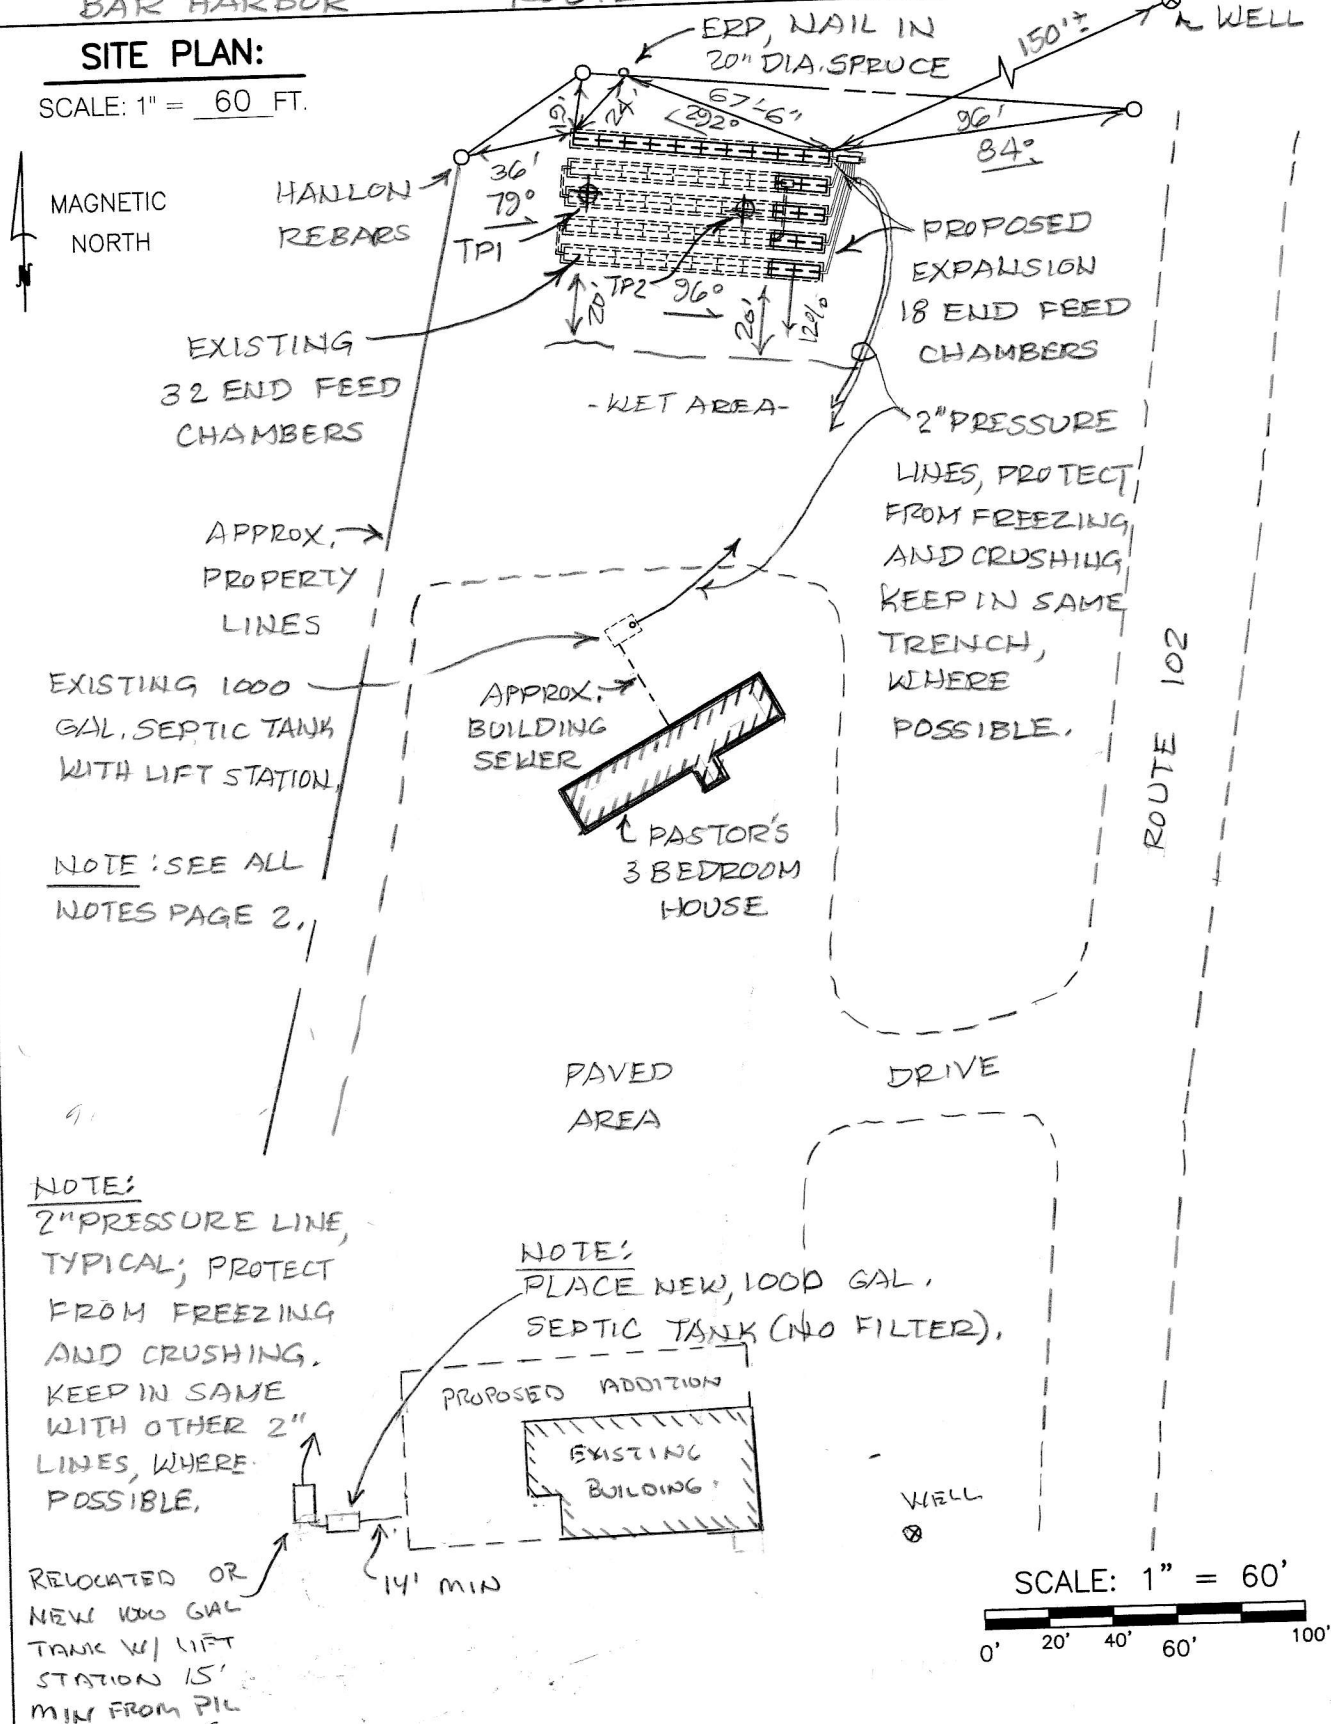 BAR HARBOR
SITE PLAN:
SCALE: 1" = 60 FT.
ERP, NAIL IN
20" DIA. SPRUCE
150'±
WELL
MAGNETIC
NORTH
N
HANLON
REBARS
36'
79°
19'
24'
67'-6"
292°
96'
84°
TP1
TP2
96°
20'
20'
12%
PROPOSED
EXPANSION
18 END FEED
CHAMBERS
EXISTING
32 END FEED
CHAMBERS
-WET AREA-
2" PRESSURE
LINES, PROTECT
FROM FREEZING
AND CRUSHING
KEEP IN SAME
TRENCH,
WHERE
POSSIBLE.
APPROX.
PROPERTY
LINES
EXISTING 1000
GAL. SEPTIC TANK
WITH LIFT STATION.
APPROX.
BUILDING
SEWER
PASTOR'S
3 BEDROOM
HOUSE
ROUTE 102
NOTE: SEE ALL
NOTES PAGE 2.
PAVED
AREA
DRIVE
NOTE:
2" PRESSURE LINE,
TYPICAL; PROTECT
FROM FREEZING
AND CRUSHING.
KEEP IN SAME
WITH OTHER 2"
LINES, WHERE
POSSIBLE.
NOTE:
PLACE NEW, 1000 GAL.
SEPTIC TANK (NO FILTER).
PROPOSED ADDITION
EXISTING
BUILDING
WELL
14' MIN
RELOCATED OR
NEW 1000 GAL
TANK W/ LIFT
STATION 15'
MIN FROM P/L
SCALE: 1" = 60'
0' 20' 40' 60' 100'